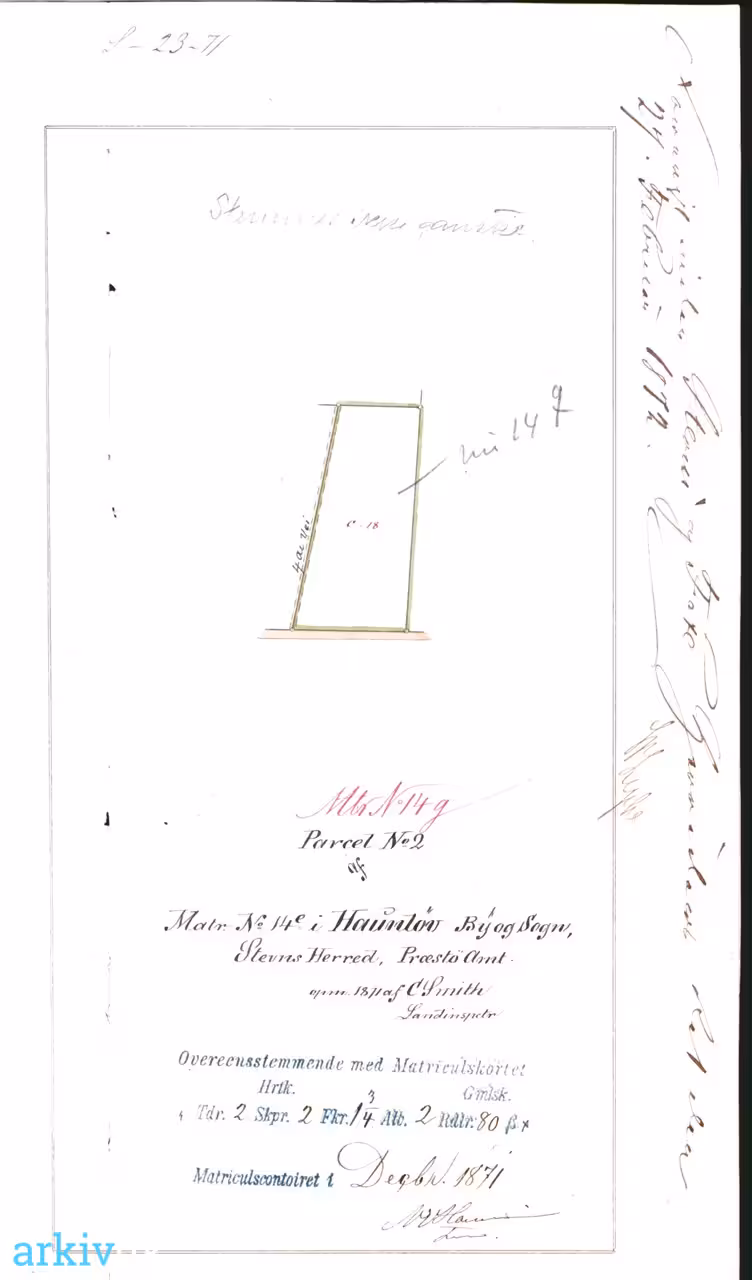 S-23-71
Stemmer ikke
nu 14 g
C. 18
4 al Vei
Mtr No 14 g
Parcel No 2
af
Matr. No 14e i Hauntöv By og Sogn,
Stevns Herred, Præstö Amt.
opm. 1871 af C Smith
Landinspctr
Overeensstemmende med Matriculskortet
Hrtk. Gmlsk.
Tdr. 2 Skpr. 2 Fkr. 1 3/4 Alb. 2 Rdlr. 80 ß
Matriculscontoiret i Decbr. 1871
Stevns og Faxe Herreders
27. Februar 1872.
arkiv